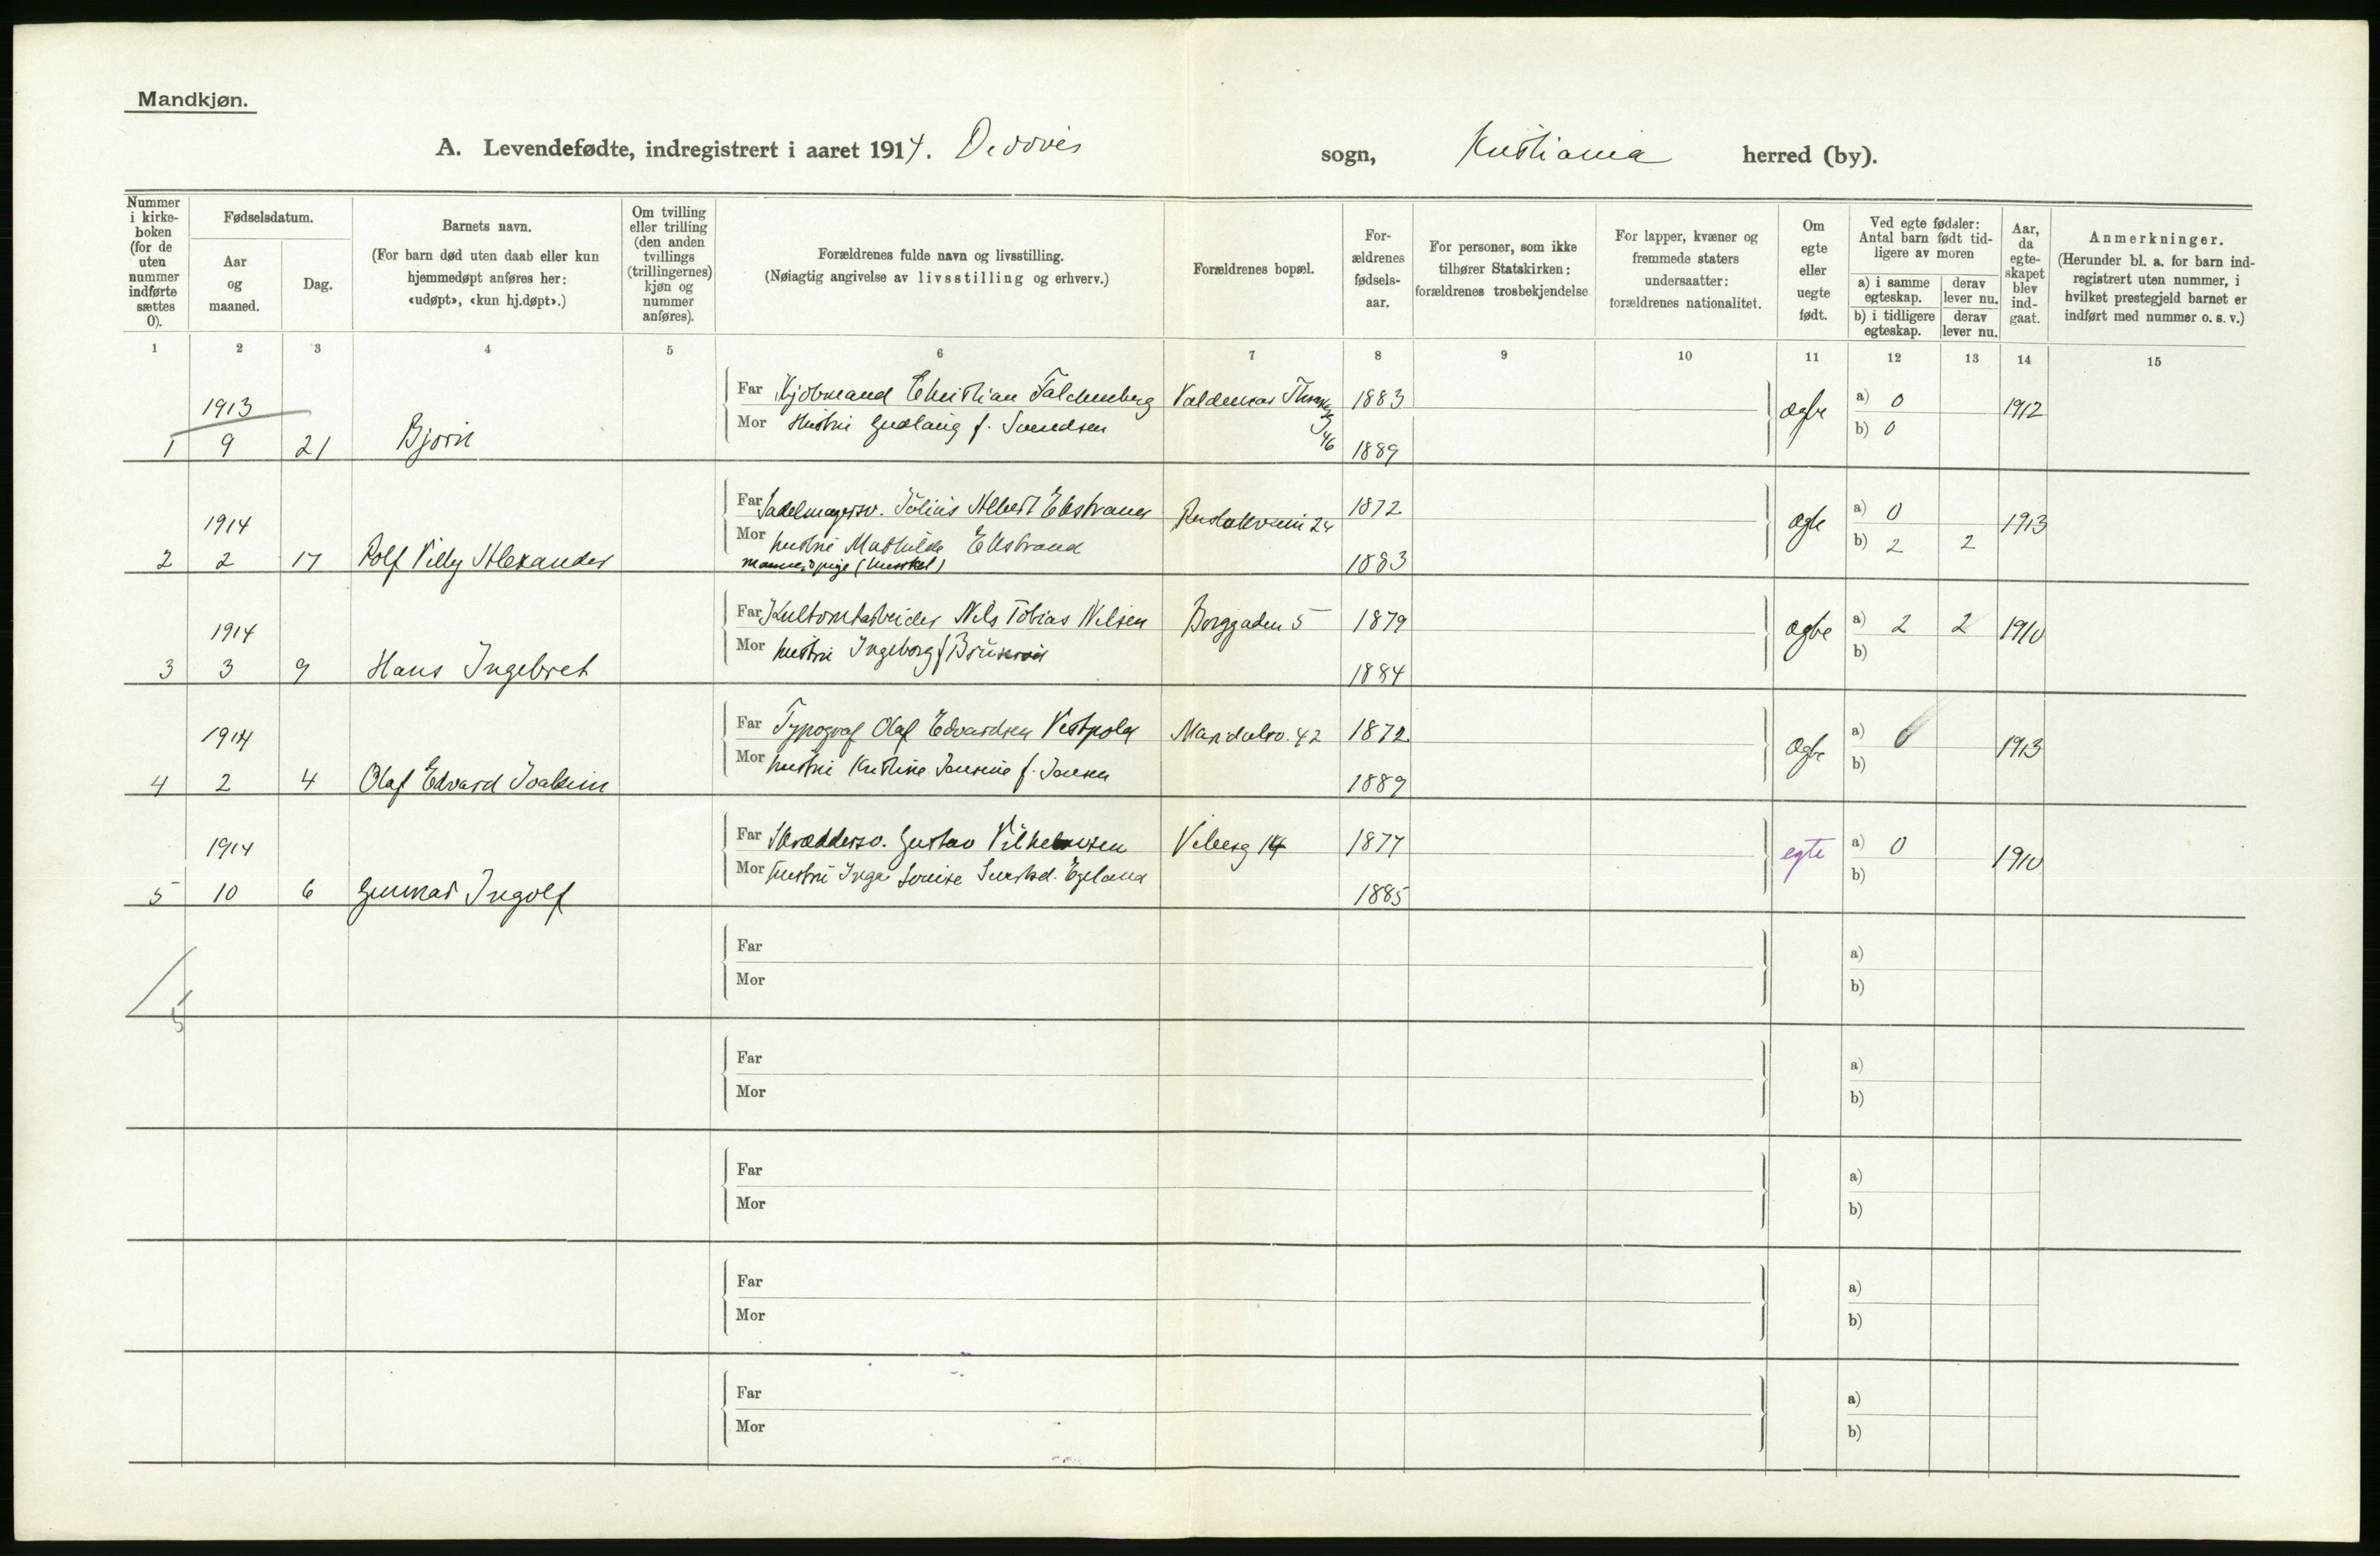 Mandkjøn.
A. Levendefødte, indregistrert i aaret 1914. sogn, Kristiania herred (by).
Nummer i kirke-boken (for de uten nummer indførte sættes 0).
Fødselsdatum.
Aar og maaned.
Dag.
Barnets navn.
(For barn død uten daab eller kun hjemmedøpt anføres her: «udøpt», «kun hj.døpt».)
Om tvilling eller trilling (den anden tvillings (trillingernes) kjøn og nummer anføres).
Forældrenes fulde navn og livsstilling.
(Nøiagtig angivelse av livsstilling og erhverv.)
Forældrenes bopæl.
For-ældrenes fødsels-aar.
For personer, som ikke tilhører Statskirken: forældrenes trosbekjendelse
For lapper, kvæner og fremmede staters undersaatter: forældrenes nationalitet.
Om egte eller uegte født.
Ved egte fødsler: Antal barn født tid-ligere av moren
a) i samme egteskap.
derav lever nu.
b) i tidligere egteskap.
derav lever nu.
Aar, da egte-skapet blev ind-gaat.
Anmerkninger.
(Herunder bl. a. for barn ind-registrert uten nummer, i hvilket prestegjeld barnet er indført med nummer o. s. v.)
1 2 3 4 5 6 7 8 9 10 11 12 13 14 15
1913
Far Kjøbmand Christian Falchenberg Valdemar Thranesg 46 1883
Mor Hustru Gudlaug f. Svendsen 1889
1 9 21 Bjørn
ægte a) 0 b) 0 1912
1914
Far Sadelmagersv. Julius Albert Ekstrand 24 1872
Mor hustru Mathilde Ekstrand
1883
2 2 17 Rolf Villy Alexander
ægte a) 0 b) 2 2 1913
1914
Far Nils Tobias Nilsen Borggaden 5 1879
Mor hustru Ingeborg f. 1884
3 3 9 Hans Ingebret
ægte a) 2 2 b) 1910
1914
Far Typograf Olaf Edvardsen Maridalsv. 42 1872
Mor hustru Kristine f. Jansen 1889
4 2 4 Olaf Edvard Joakim
ægte a) 0 b) 1913
1914
Far Skræddersv. Gustav Vilhelmsen Vibesg 14 1877
Mor hustru Inga Lovise Egeland 1885
5 10 6 Gunnar Ingolf
egte a) 0 b) 1910
Far a)
Mor b)
5
Far a)
Mor b)
Far a)
Mor b)
Far a)
Mor b)
Far a)
Mor b)